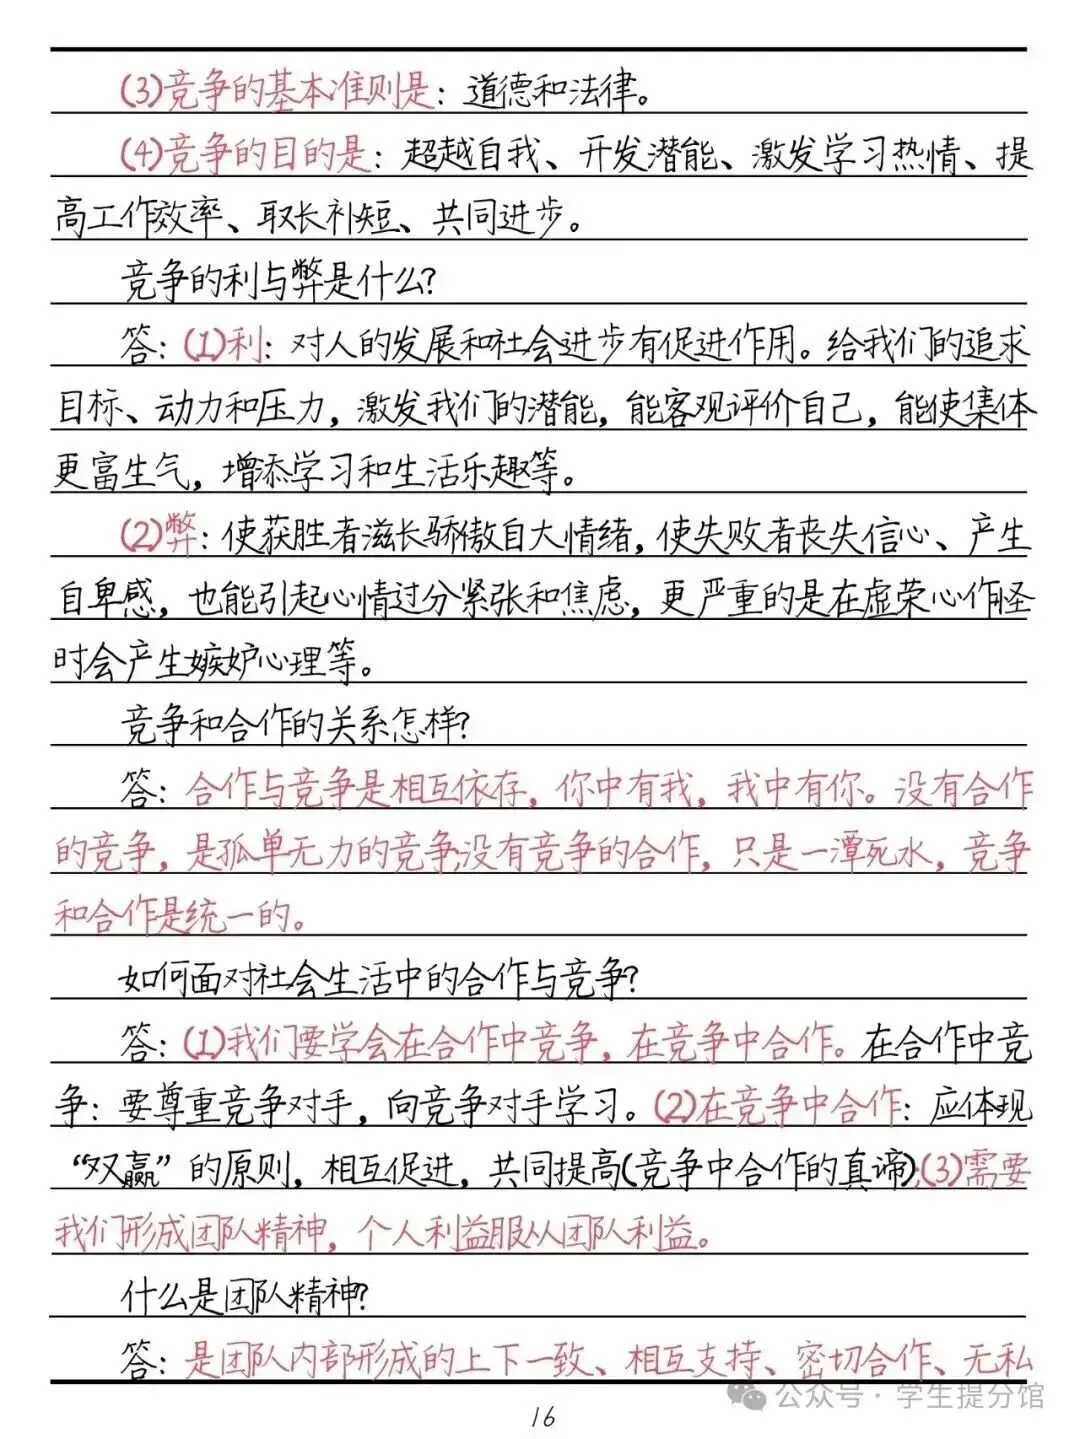 (3)竞争的基本准则是：道德和法律。
(4)竞争的目的是：超越自我、开发潜能、激发学习热情、提
高工作效率、取长补短、共同进步。
竞争的利与弊是什么?
答：(1)利：对人的发展和社会进步有促进作用。给我们的追求
目标、动力和压力，激发我们的潜能，能客观评价自己，能使集体
更富生气，增添学习和生活乐趣等。
(2)弊：使获胜者滋长骄傲自大情绪，使失败者丧失信心、产生
自卑感，也能引起心情过分紧张和焦虑，更严重的是在虚荣心作怪
时会产生嫉妒心理等。
竞争和合作的关系怎样?
答：合作与竞争是相互依存，你中有我，我中有你。没有合作
的竞争，是孤单无力的竞争;没有竞争的合作，只是一潭死水，竞争
和合作是统一的。
如何面对社会生活中的合作与竞争?
答：(1)我们要学会在合作中竞争，在竞争中合作。在合作中竞
争：要尊重竞争对手，向竞争对手学习。(2)在竞争中合作：应体现
“双赢”的原则，相互促进，共同提高(竞争中合作的真谛);(3)需要
我们形成团队精神，个人利益服从团队利益。
什么是团队精神?
答：是团队内部形成的上下一致、相互支持、密切合作、无私
公众号·学生提分馆
16